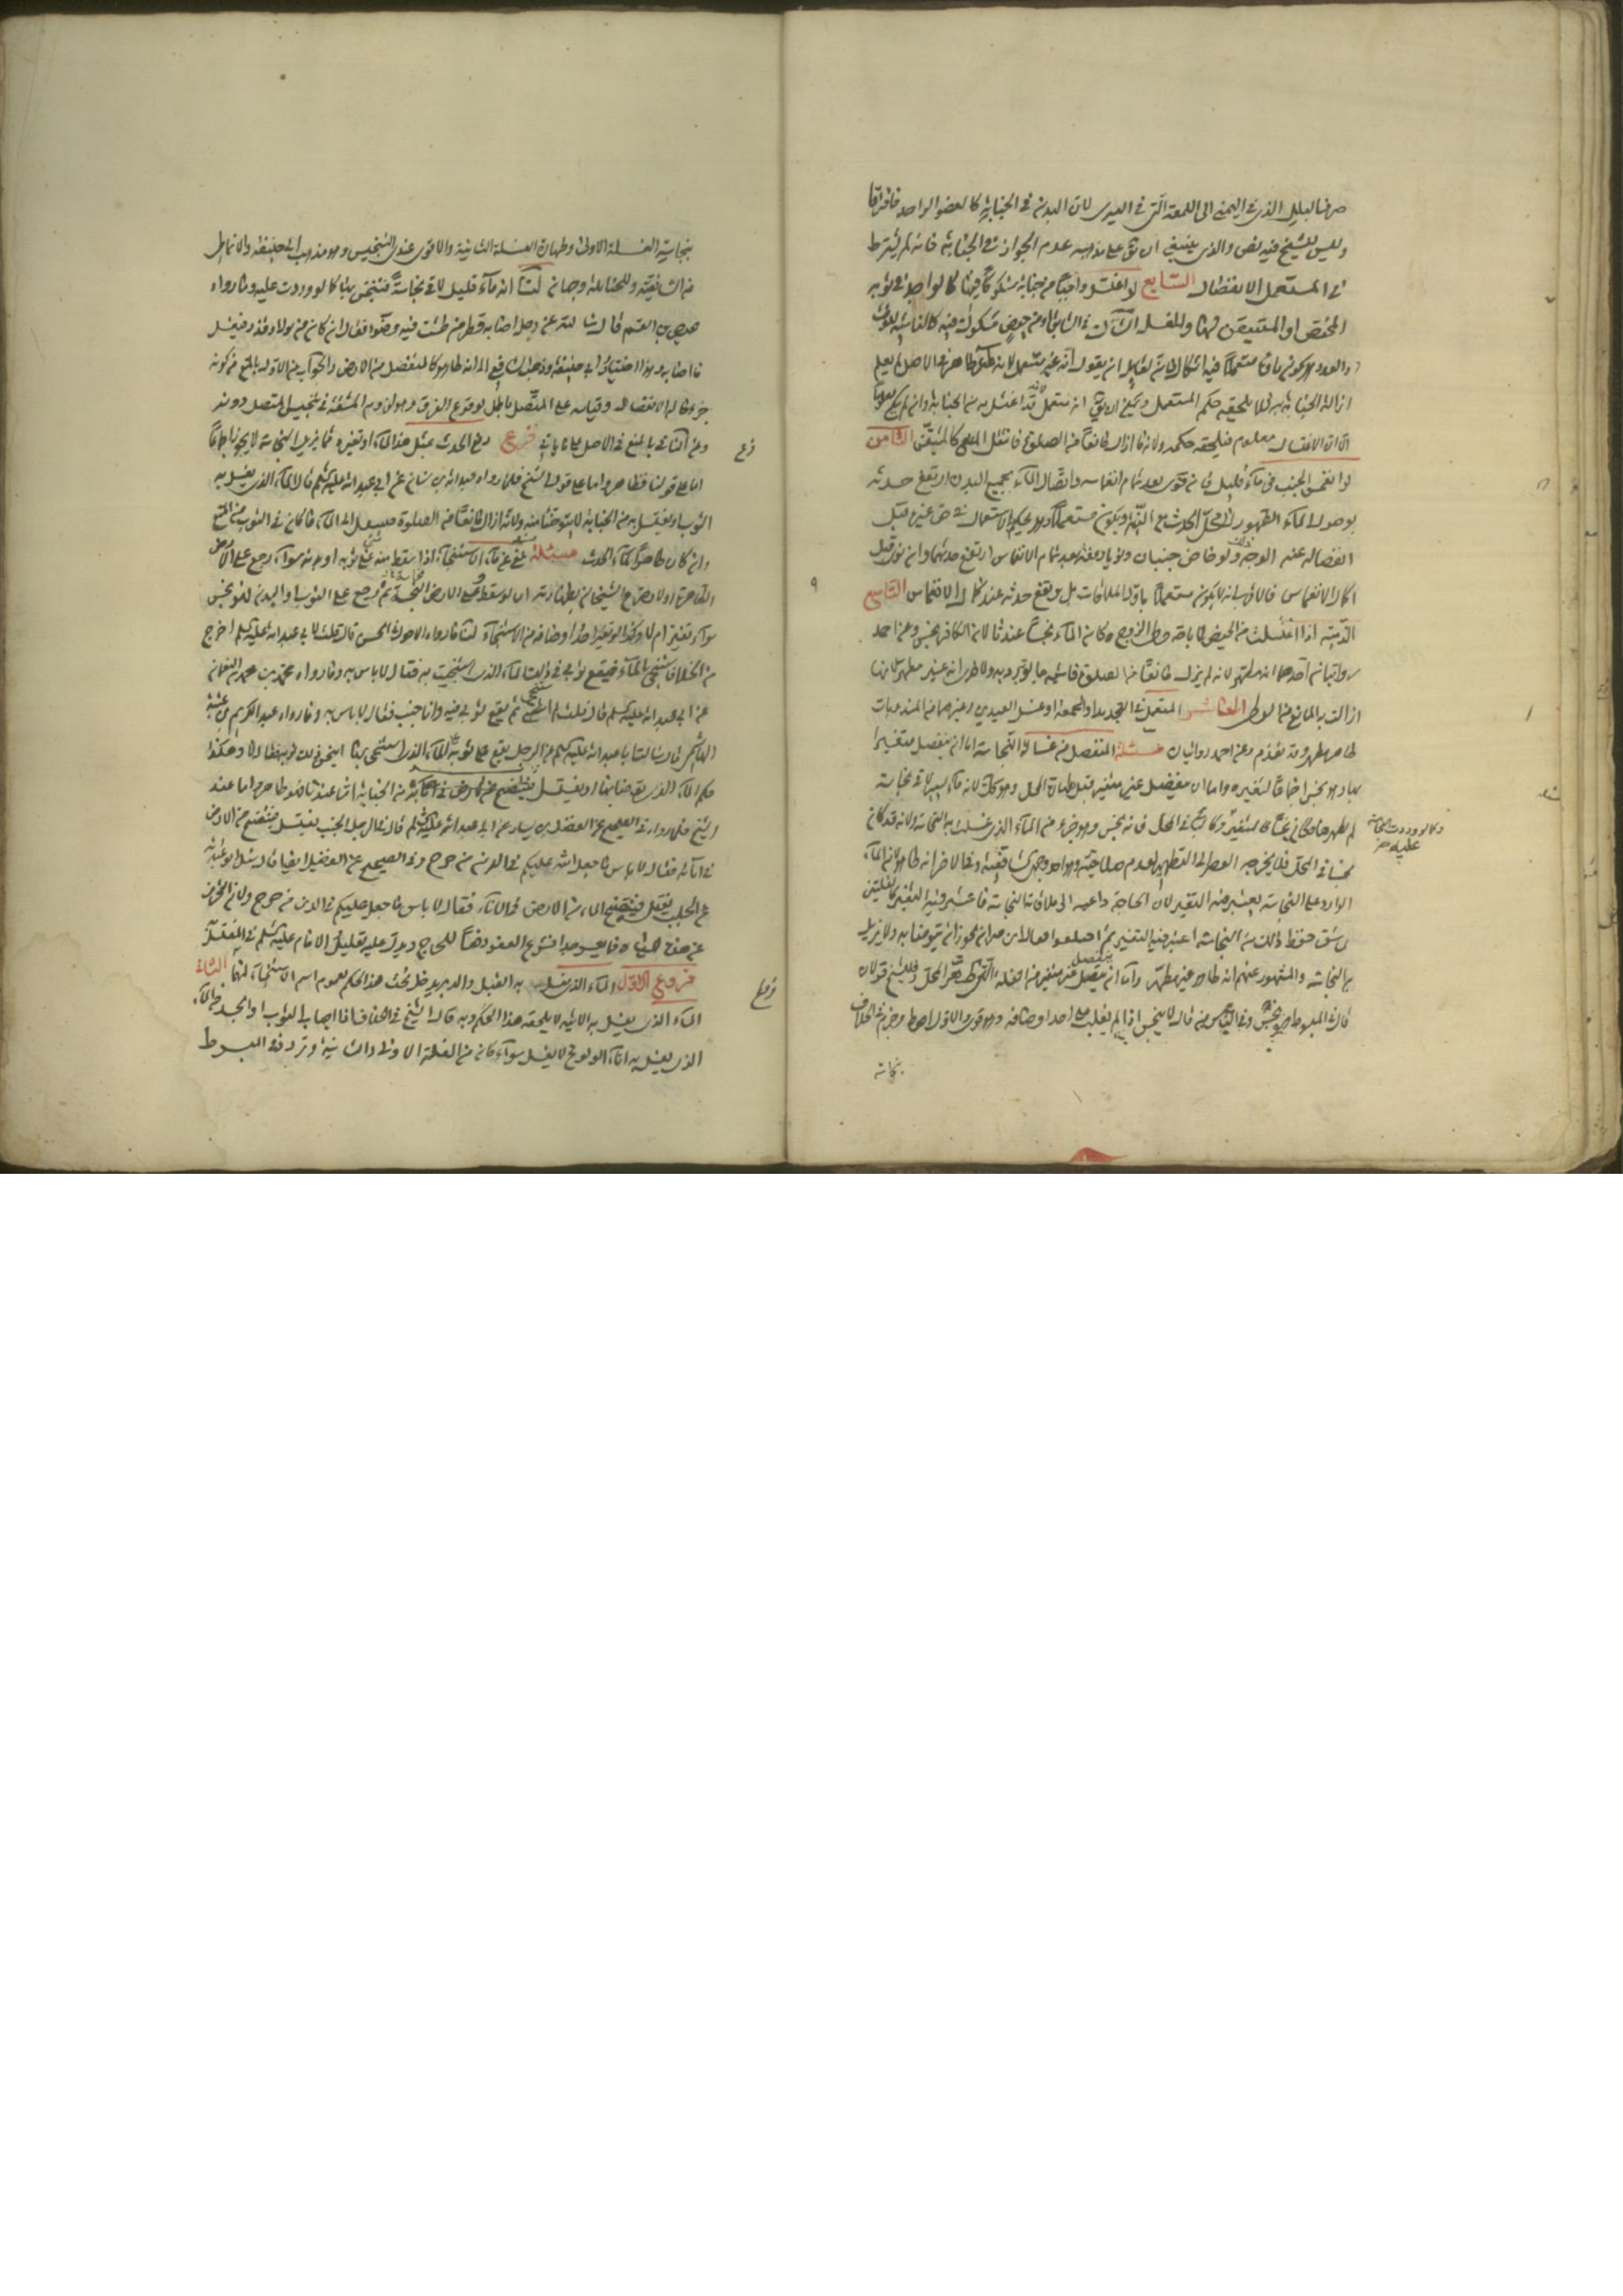 صرف البلل الذي في اليمنى الى اللمعة التي في اليسرى لان البدن في الجنابة كالعضو الواحد فافترقا
وليس للشيخ فيه نص والذي ينبغي ان يق على مذهبه عدم الجواز في الجنابة فانه لم يشترط
في المستعمل الانفصال السابع لو اغتسل واجبا من جنابة مشكوك فيها كالواجد في ثوبه
المختص او المتيقن لها والغسل الشاك في السابق او من حيض مشكوك فيه كالناسية للوقت
والعدد هل يكون ماؤها مستعملا فيه اشكال فان لقائل ان يقول انه غير مستعمل لانه ماء طاهر في الاصل لم يعلم
ازالة الجنابة به فلا يلحقه حكم المستعمل ويمكن ان يق انه مستعمل لانه قد اغتسل به من الجنابة وان لم يكن معلوما
الا ان الاغتسال معلوم فيلحقه حكمه ولانه ماء ازال مانعا من الصلوة فانتقل المنع اليه كالمتيقن الثامن
لو انغمس الجنب في ماء قليل فان نوى بعد تمام انغماسه واتصال الماء بجميع البدن ارتفع حدثه
بوصول الماء الطهور الى محل الحدث مع النية ويكون مستعملا وهل يحكم بالاستعمال في حق غيره قبل
انفصاله عنه الوجه ذلك ولو خاض جنبان ونويا دفعة بعد تمام الانغماس ارتفع حدثهما وان نوى قبل
اكمال الانغماس فالاقرب انه لا يكون مستعملا باول الملاقات بل ويقع حدثه عند كمال الانغماس التاسع
الذمية اذا اغتسلت من الحيض لاباحة وطي الزوج كان الماء نجسا عندنا لان الكافر نجس وعن احمد
روايتان احدهما انه مطهر لانه لم يزل مانعا من الصلوة فاشبه ما لو تبرد به والاخرى انه غير مطهر لانها
ازالت به المانع من الوطي العاشر المستعمل في التجديد او الجمعة او غسل العيدين وغيرهما من المندوبات
طاهر مطهر وقد تقدم وعن احمد روايتان مسئلة المنفصل من غسالة النجاسة اما ان ينفصل متغيرا
بها وهو نجس اجماعا لتغيره واما ان ينفصل غير متغير قبل طهارة المحل وهو كك لانه ماء يسير لاقى نجاسة
لم يطهرها فكان نجسا كالمتغير وكالباقي في المحل فانه نجس وهو جزء من الماء الذي غسلت به النجاسة ولانه قد كان
نجسا في المحل فلا يخرجه العصر الى التطهير لعدم صلاحيته وهو احد وجهي الشافعية وقال الاخر انه طاهر لان الماء
الوارد على النجاسة يعتبر فيه التغير لان الحاجة داعية الى ملاقاة النجاسة فاعتبر فيه التغير كالقلتين
به النجاسة والمشهور عنهم انه طاهر غير مطهر واما ان ينفصل غير متغير من الغسلة التي طهر المحل فللشيخ قولان
قال في المبسوط هو نجس وفي الناس من قال لا ينجس اذا لم يغلب على احد اوصافه وهو قوي والاول احوط وجزم في الخلاف
بنجاسة
وكالو وردت النجاسة
عليه صح
٩
بنجاسة الغسلة الاولى وطهارة الغسلة الثانية والاقوى عندي التنجيس وهو مذهب ابي حنيفة والانماطي
من الشافعية وللحنابلة وجهان لنا انه ماء قليل لاقى نجاسة فينجس بها كالو وردت عليه وما رواه
عيص بن القسم قال سالته عن رجل اصابه قطر من طشت فيه وضوء فقال ان كان من بول او قذر فيغسل
ما اصابه وهذا اختيار ابي حنيفة وذهب الشافعي الى انه طاهر كالمنفصل من الارض والجواب عن الاول بالمنع من كونه
جزءا حال الانفصال وقياسه على المتصل باطل لوقوع الفرق وهو لزوم المشقة في تنجيس المتصل دونه
وعن الثاني بالمنع في الاصل على ما ياتي فرع رفع الحدث بمثل هذا الماء او بغيره مما يزيل النجاسة لا يجوز اجماعا
اما على قولنا فظاهر واما على قول الشيخ فلما رواه عبد الله بن سنان عن ابي عبد الله عليه السلم قال الماء الذي يغسل به
الثوب او يغتسل به من الجنابة لا يتوضا منه ولانه ازال مانعا من الصلوة فينتقل الى الماء فاكان في الثوب من المنع
وان كان طاهرا كماء الحدث مسئلة عفي عن ماء الاستنجاء اذا سقط منه شيء على ثوبه او بدنه سواء رجع على الارض
سواء تغير ام لا ولو تغير احد اوصافه من الاستنجاء لنا ما رواه الاحول في الحسن قال قلت لابي عبد الله عليه السلم اخرج
من الخلاء فاستنجي بالماء فيقع ثوبي في ذلك الماء الذي استنجيت به فقال لا باس به وما رواه محمد بن النعمان
عن ابي عبد الله عليه السلم قال قلت له استنجي ثم يقع ثوبي فيه وانا جنب فقال لا باس به وما رواه عبد الكريم بن عتبة
الهاشمي قال سالت ابا عبد الله عليه السلم عن الرجل يقع ثوبه على الماء الذي استنجى به اينجس ذلك ثوبه فقال لا وهكذا
الشيخ فلما رواه في الصحيح عن الفضيل بن يسار عن ابي عبد الله عليه السلم قال في الرجل الجنب يغتسل فينتضح من الارض
في انائه فقال لا باس ما جعل الله عليكم في الدين من حرج وفي الصحيح عن الفضيل ايضا قال سئل ابو عبد الله
عن الجنب يغتسل فينتضح الماء من الارض في الاناء فقال لا باس ما جعل عليكم في الدين من حرج ولان التحرز
فروع الاول الماء الذي يغسل به القبل والدبر يدخل تحت هذا الحكم لعموم اسم الاستنجاء لهما الثاني
الماء الذي يغسل به الانية لا يلحقه هذا الحكم وبه قال الشيخ في الخلاف اذا اصاب الثوب او الجسد من الماء
الذي يغسل به اناء الولوغ لا يغسل سواء كان من الغسلة الاولى او الثانية وتردد في المبسوط
فرع
فروع